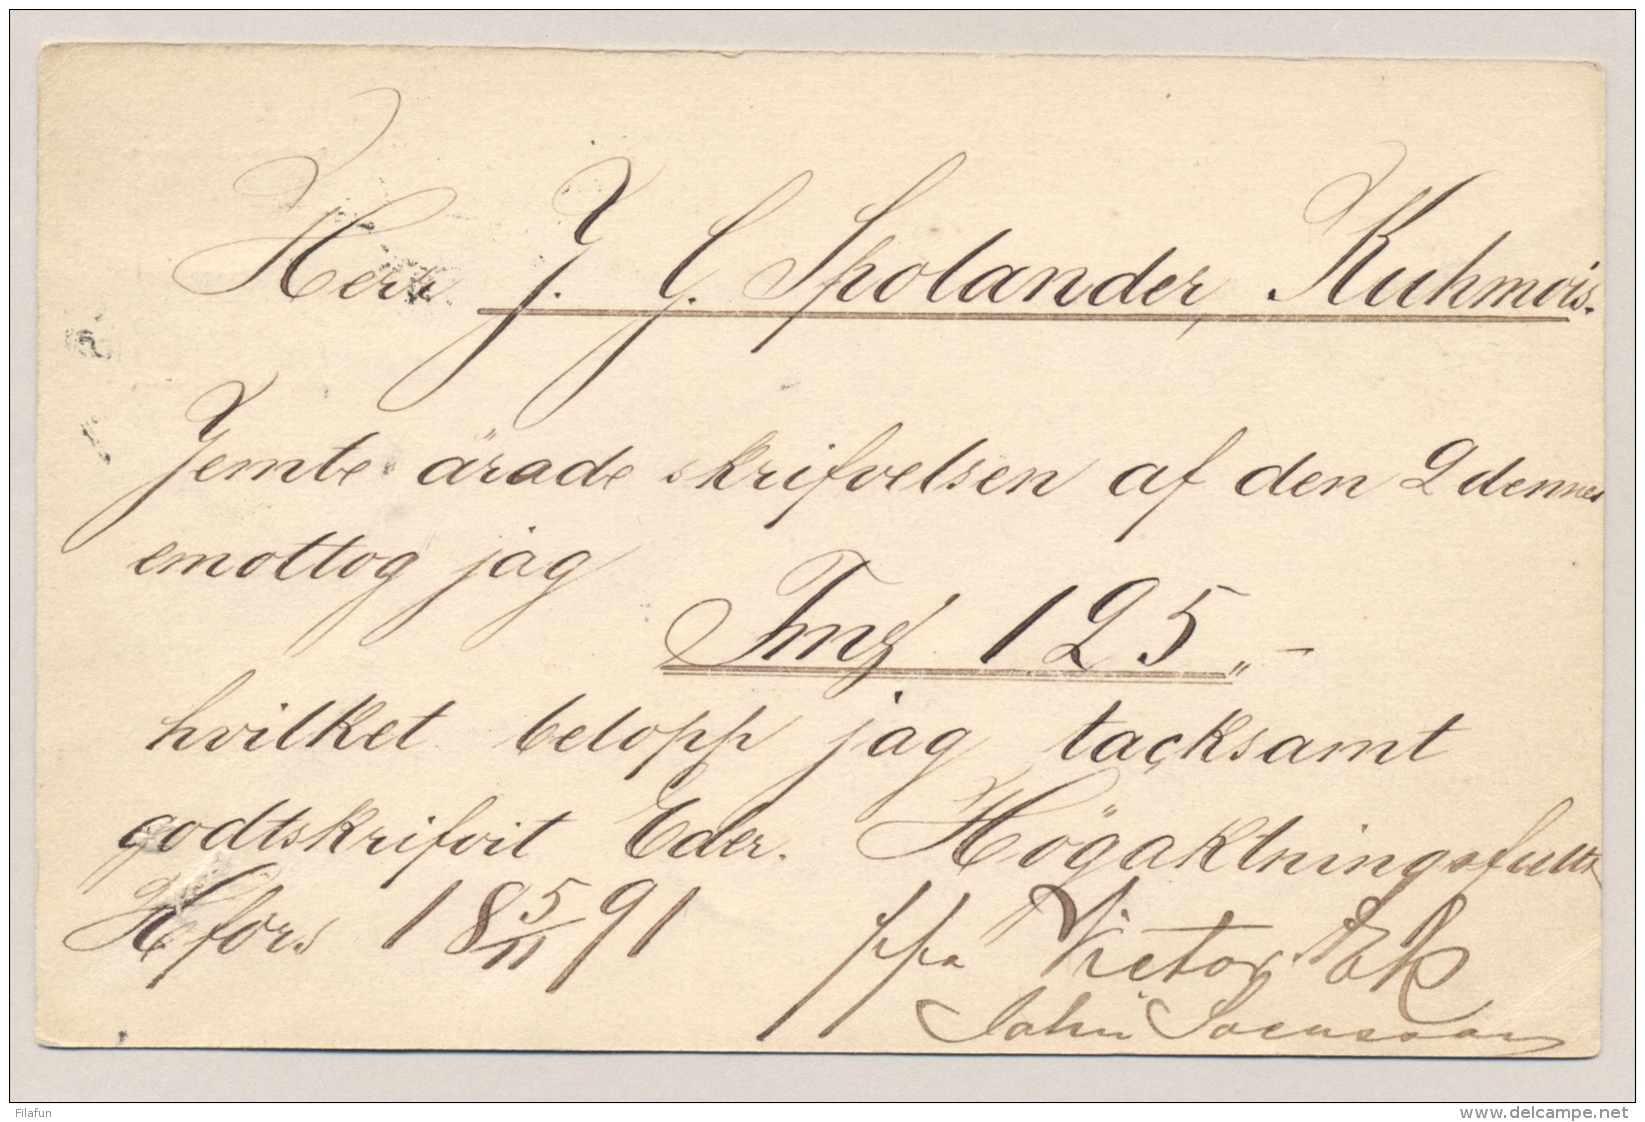 Herr J. G. Spolander, Kuhmois.
Jemte ärade skrifvelsen af den 2 dennes
emottog jag
Fmk 125 „ –
hvilket belopp jag tacksamt
godtskrifvit Eder. Högaktningsfullt
Hfors 18 5/11 91 ppa Victor Ek
John
Filafun
www.delcampe.net